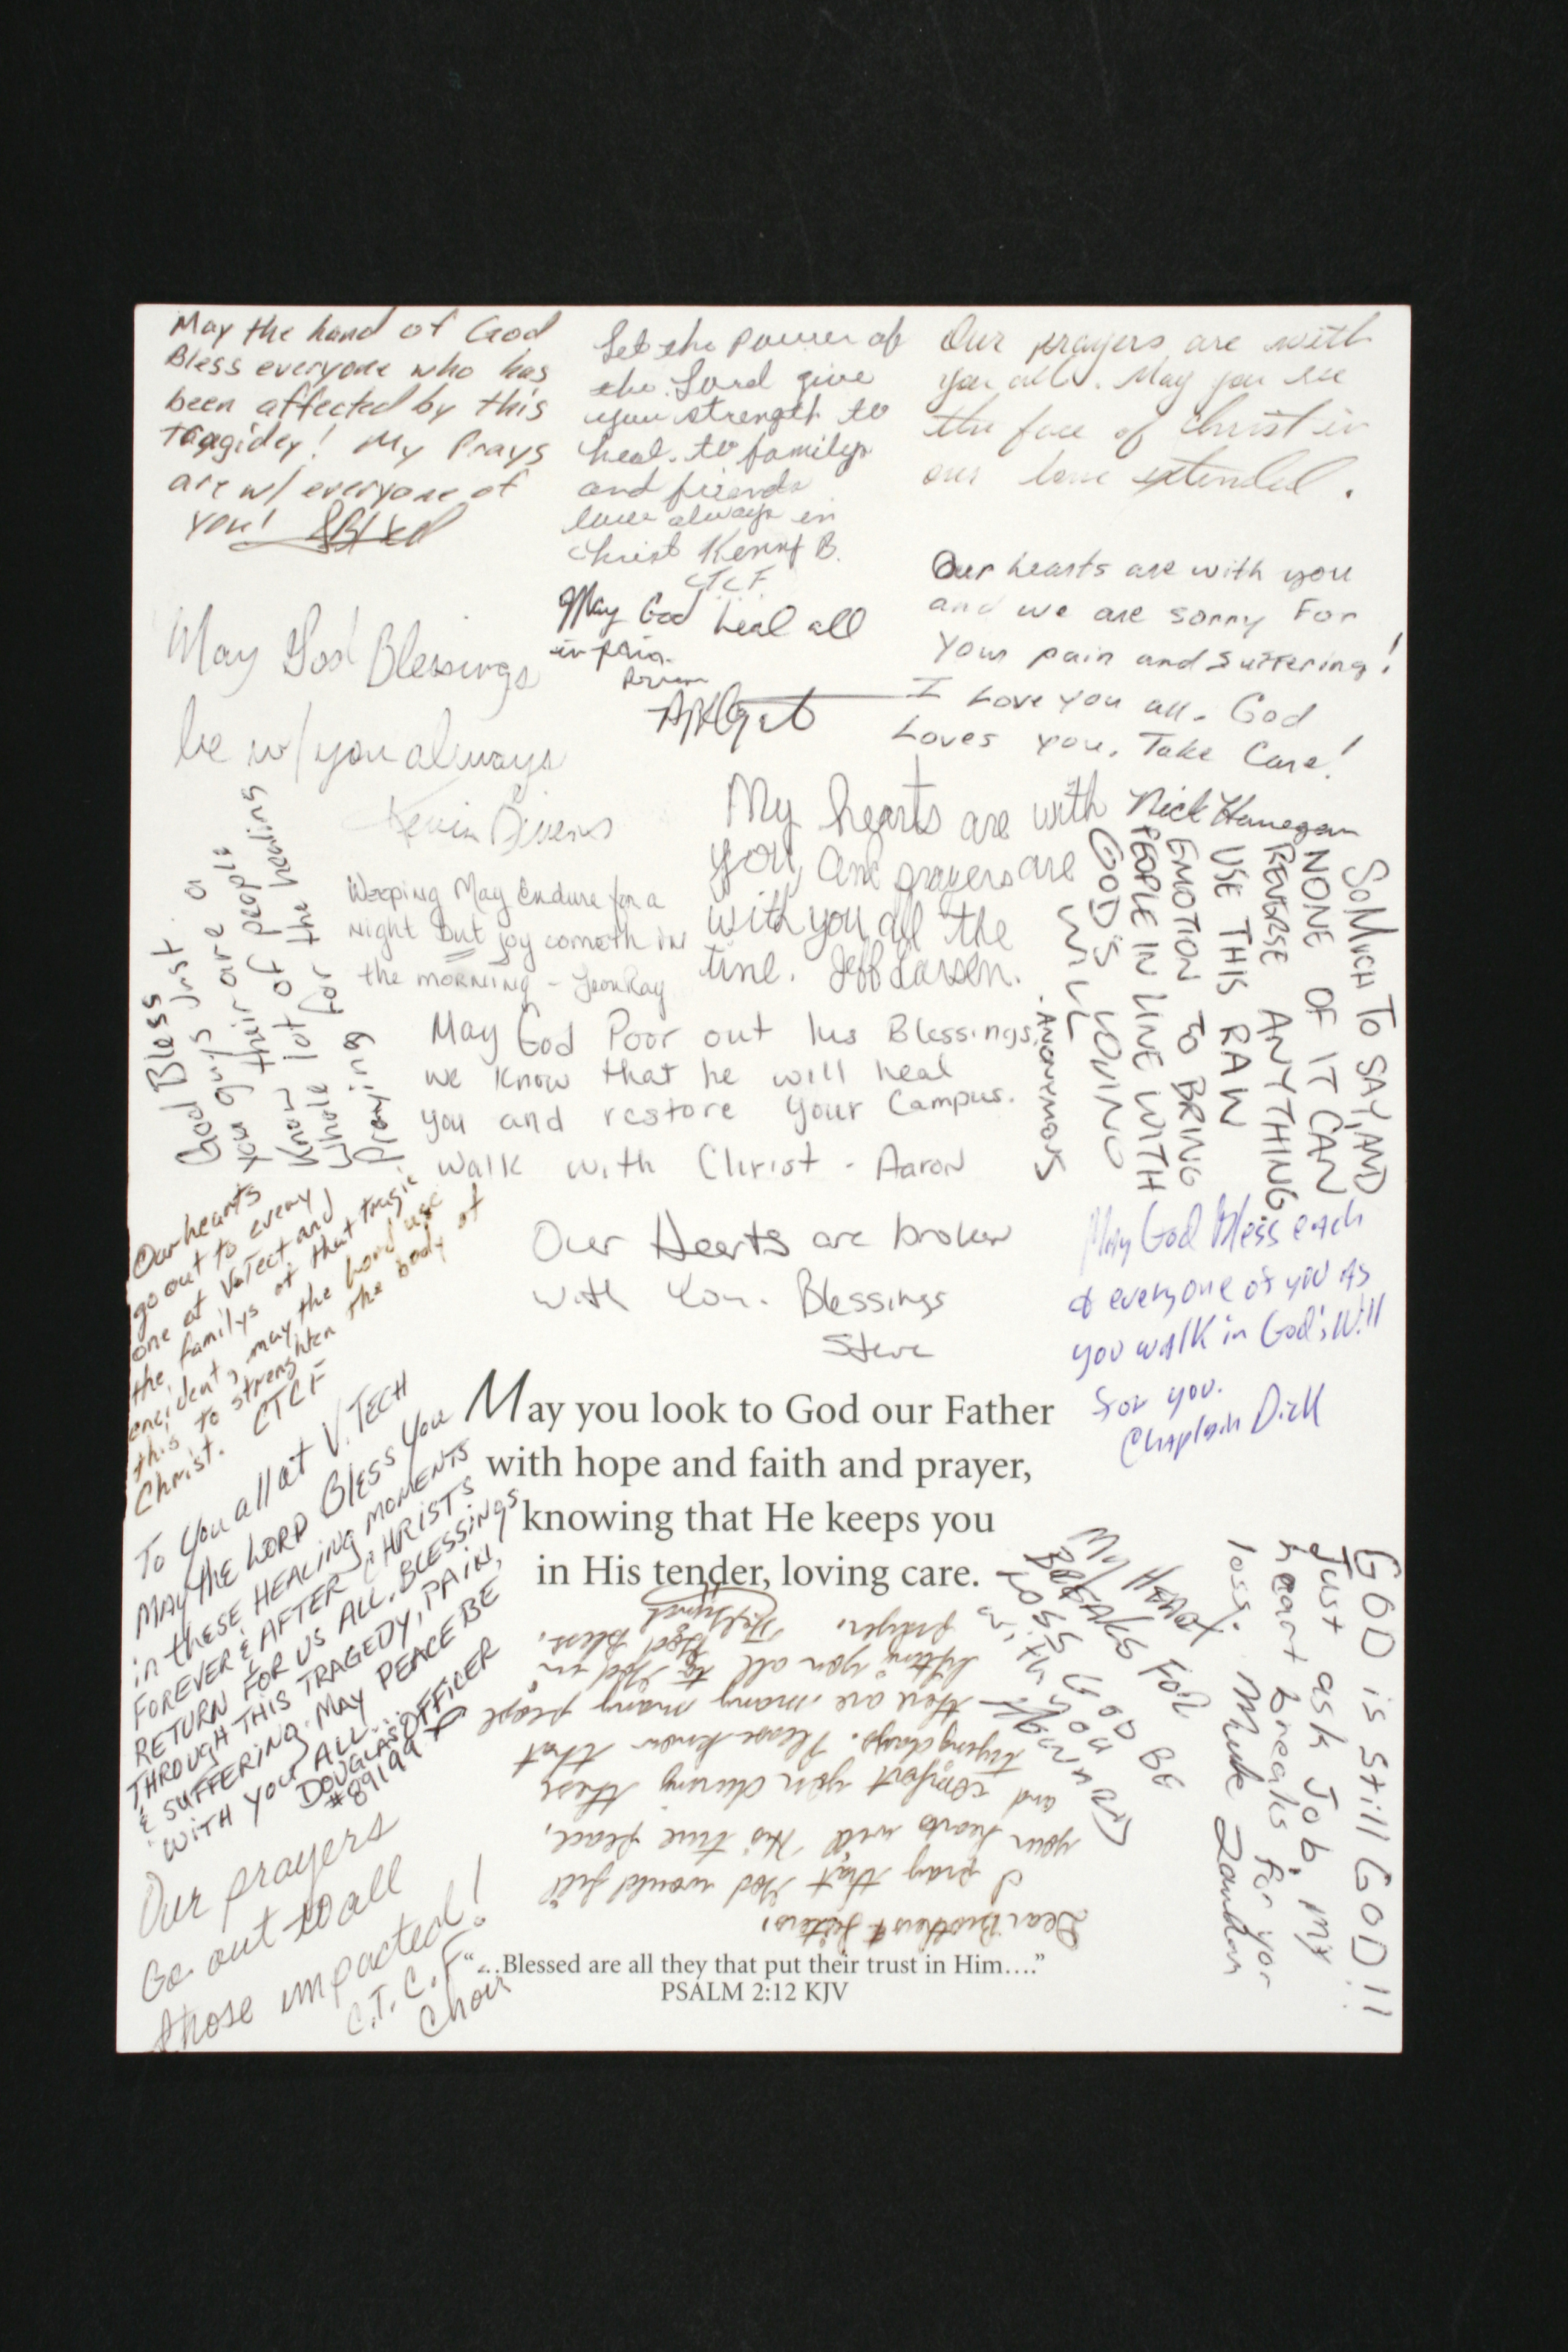 May the hand of God
Bless everyone who has
been affected by this
Tragidey! My Prays
are w/ everyone of
you!
Let the power of
the Lord give
you strength to
heal. to familys
and friends
love always in
Christ Kenny B.
CTCF
Our prayers are with
you all. May you see
the face of Christ in
our love extended.
May God heal all
in pain.
Our hearts are with you
and we are sorry For
your pain and suffering!
I Love you all. God
Loves you. Take Care!
Nick Hanegan
May God Blessings
be w/ you always
Kevin
My hearts are with
you, and prayers are
with you all the
time. Jeff Larsen.
Weeping May Endure for a
Night But joy cometh in
the morning - Leon Ray
God Bless
you guys just
know their are a
whole lot of people
praying for the healing
May God Poor out his Blessings,
we know that he will heal
you and restore your Campus.
Walk with Christ - Aaron
So Much To SAY, AND
NONE OF IT CAN
REVERSE ANYTHING
USE THIS RAW
EMOTION TO BRING
PEOPLE IN LINE WITH
GOD'S LOVING
WILL
. ANONYMOUS
Our Hearts are broken
with You. Blessings
Steve
May God Bless each
& everyone of you As
you walk in God's Will
for you.
Chaplain Dick
Our hearts
go out to every
one at Va Tect and
the familys of that tragic
encident, may the lord use
this to strenghten the body of
Christ. CTCF
To you all at V. TECH
MAY the LORD Bless you
in these HEALING MOMENTS
FOREVER & AFTER CHRISTS
RETURN FOR US ALL. BLESSINGS
THROUGH THIS TRAGEDY, PAIN,
& SUFFERING. MAY PEACE BE
WITH YOU ALL...
DOUGLAS OFFICER
#89199
May you look to God our Father
with hope and faith and prayer,
knowing that He keeps you
in His tender, loving care.
My HEART
BREAKS FOR
LOSS GOD BE
with you
Dear Brothers & Sisters,
I pray that God would fill
your hearts with His true peace,
and comfort you during these
trying days. Please know that
there are many many people
lifting you all to God in
prayer. God Bless.
GOD is Still GOD!!
Just ask Job. my
heart breaks for your
loss. Mark
Our prayers
Go out to all
those impacted!
C.T.C.F.
Choir
"...Blessed are all they that put their trust in Him...."
PSALM 2:12 KJV